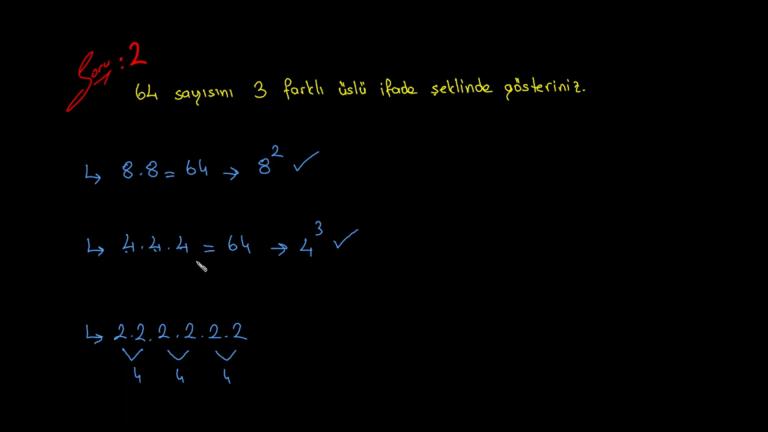 Soru: 2
64 sayısını 3 farklı üslü ifade şeklinde gösteriniz.
↳ 8.8 = 64 → 8² ✓
↳ 4.4.4 = 64 → 4³ ✓
↳ 2.2.2.2.2.2
4 4 4